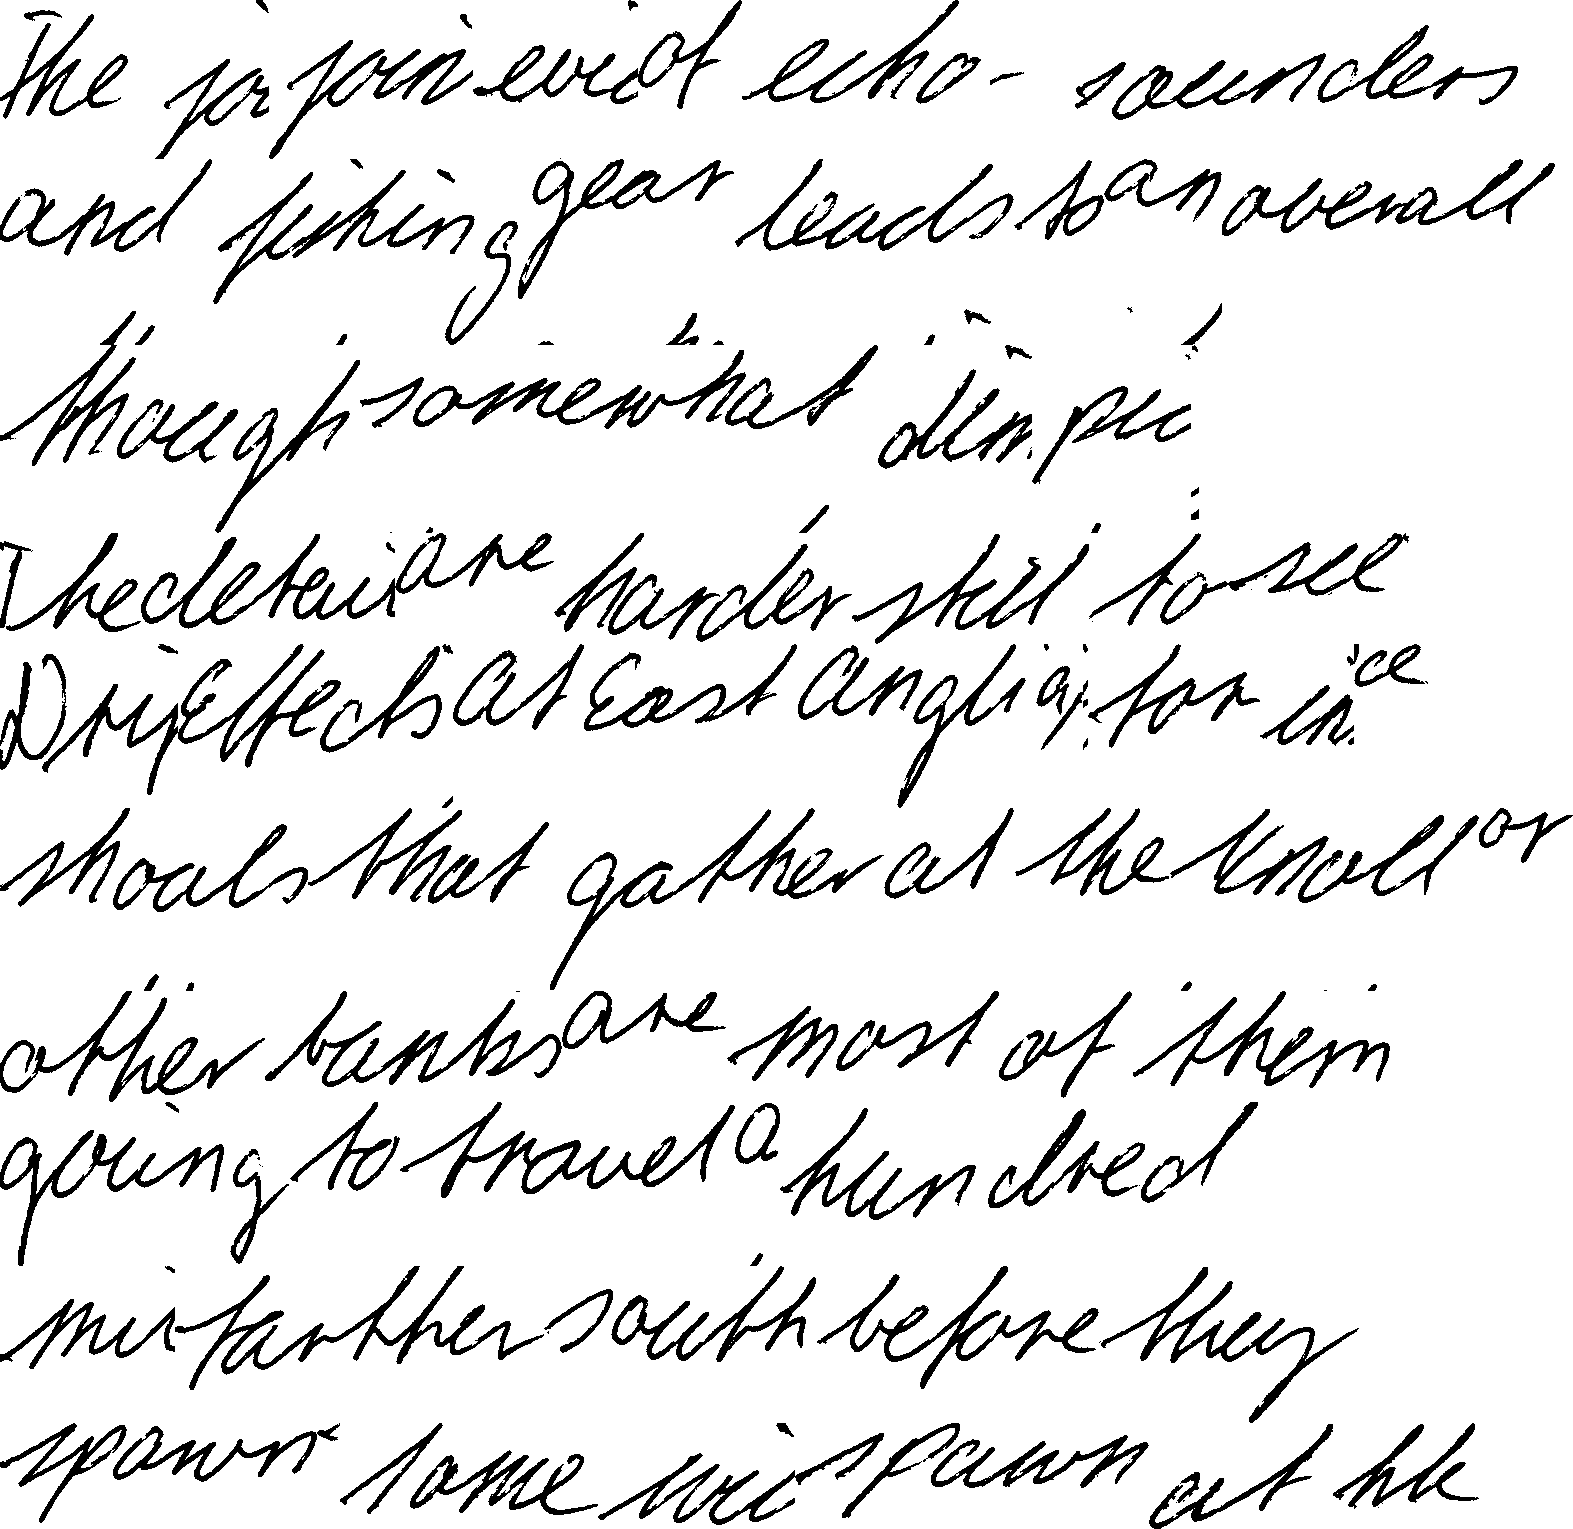 The join evid of echo-sounders
and fishing gear leads to an overall
though somewhat dim pic
The detail are harder still to see
Drif Effects at East Anglia, for in ce
shoals that gather at the Knoll or
other banks are most of them
going to travel a hundred
farther south before they
spawn some spawn at